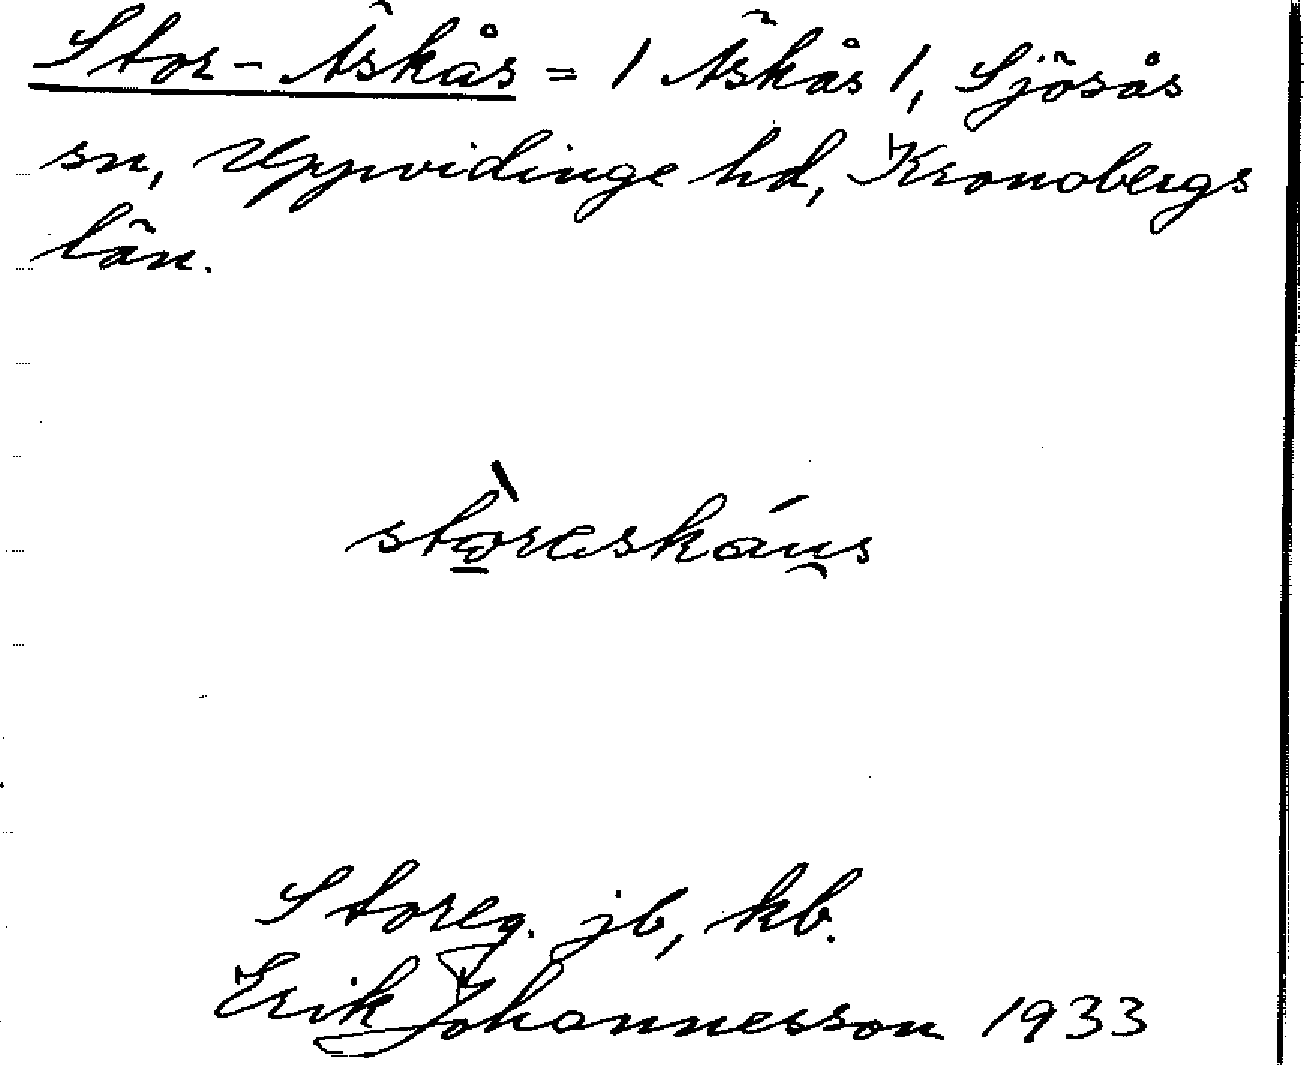 Stor-Äskås = / Äskås /, Sjösås
sn, Uppvidinge hd, Kronobergs
län.
Storeg. jb, kb.
Erik Johannesson 1933